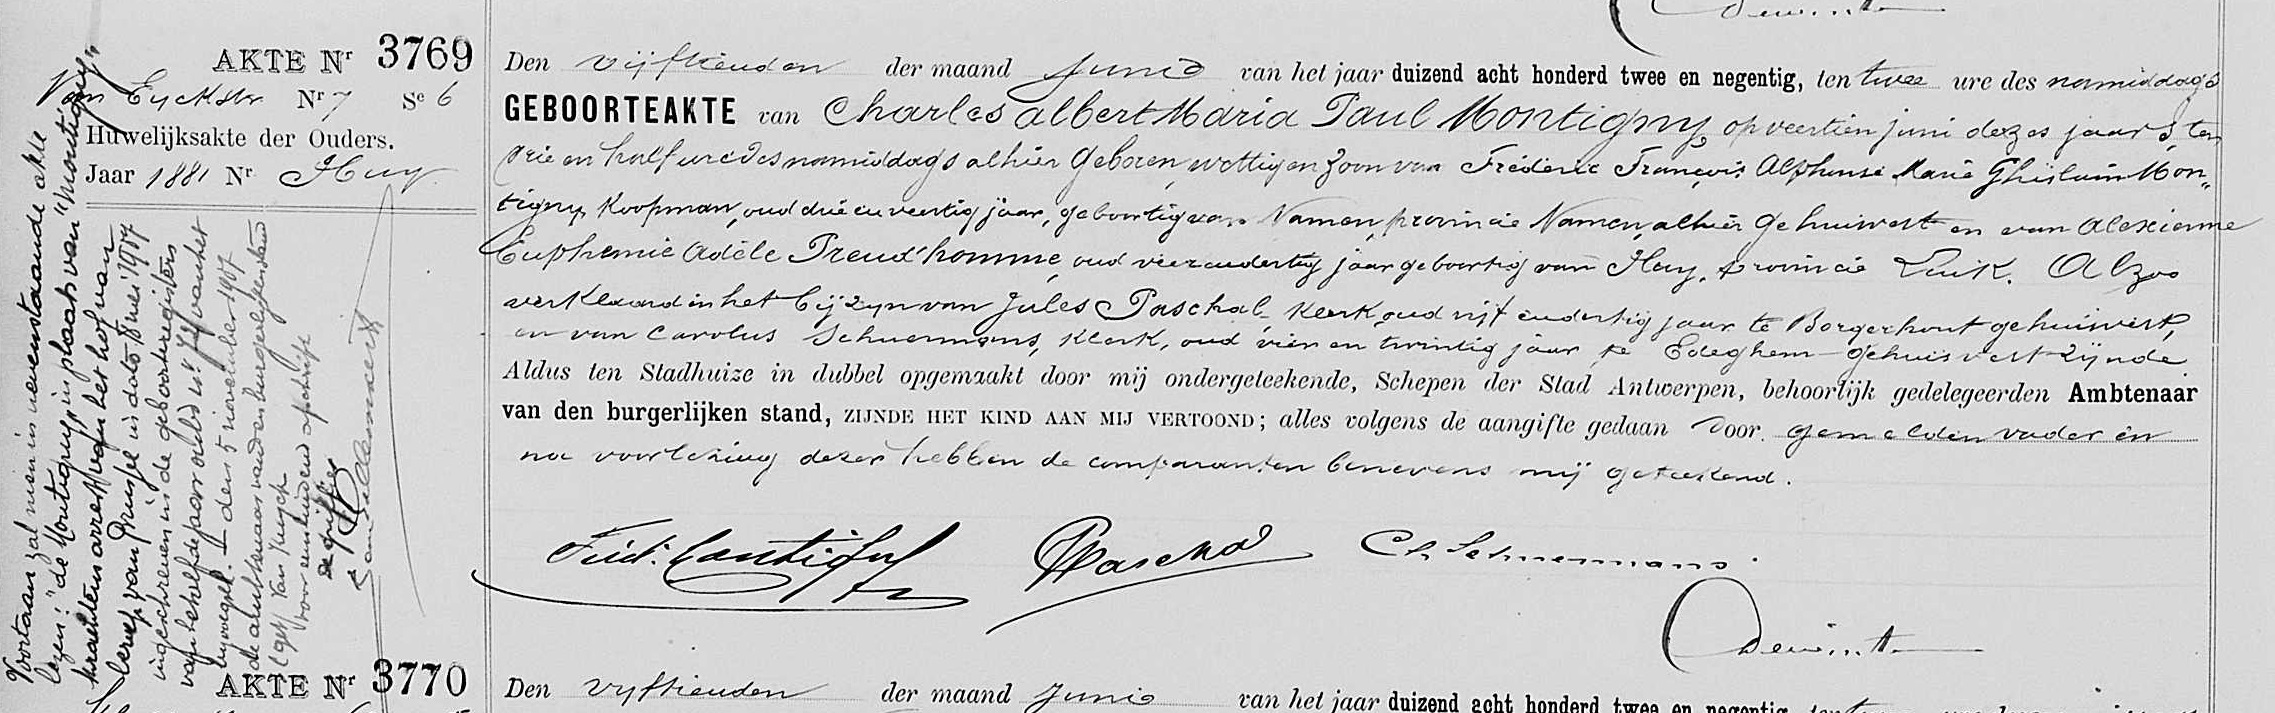 Dewinter
AKTE Nr 3769
Van Eyckstr Nr 7 Se 6
Huwelijksakte der Ouders.
Jaar 1881 Nr Huy
Voortaan zal men in nevenstaande akte
lezen: "de Montigny" in plaats van "Montigny"
krachtens arrest van het hof van
beroep van Brussel in dato 8 mei 1907
ingeschreven in de geboorteregisters
van hetzelfde jaar
den 5 november 1907
de ambtenaar van den burgerlijken stand
(get) Van Kuyck
Voor eensluidend afschrift
De griffier
Den vijftienden der maand Junio van het jaar duizend acht honderd twee en negentig, ten twee ure des namiddags
GEBOORTEAKTE van Charles Albert Maria Paul Montigny op veertien juni dezes jaars, ten
drie en half ure des namiddags alhier geboren, wettigen zoon van Fréderic François Alphonse Marie Ghislain Mon„
tigny, Koopman, oud drie en veertig jaar, geboortig van Namen, provincie Namen, alhier gehuisvest en van Alexienne
Euphemie Adèle Preud'homme, oud vier en dertig jaar geboortig van Huy, provincie Luik. Alzoo
verklaard in het bijzijn van Jules Paschal, klerk, oud vijf en dertig jaar te Borgerhout gehuisvest,
en van Carolus Schuermans, klerk, oud vier en twintig jaar, te Edeghem gehuisvest zijnde
Aldus ten Stadhuize in dubbel opgemaakt door mij ondergeteekende, Schepen der Stad Antwerpen, behoorlijk gedelegeerden Ambtenaar
van den burgerlijken stand, ZIJNDE HET KIND AAN MIJ VERTOOND; alles volgens de aangifte gedaan door gemelden vader en
na voorlezing dezer hebben de comparanten benevens mij geteekend.
Fréd. Montigny Paschal Ch Schuermans.
Dewinter
AKTE Nr 3770
Den vyftienden der maand Junio van het jaar duizend acht honderd twee en negentig, ten